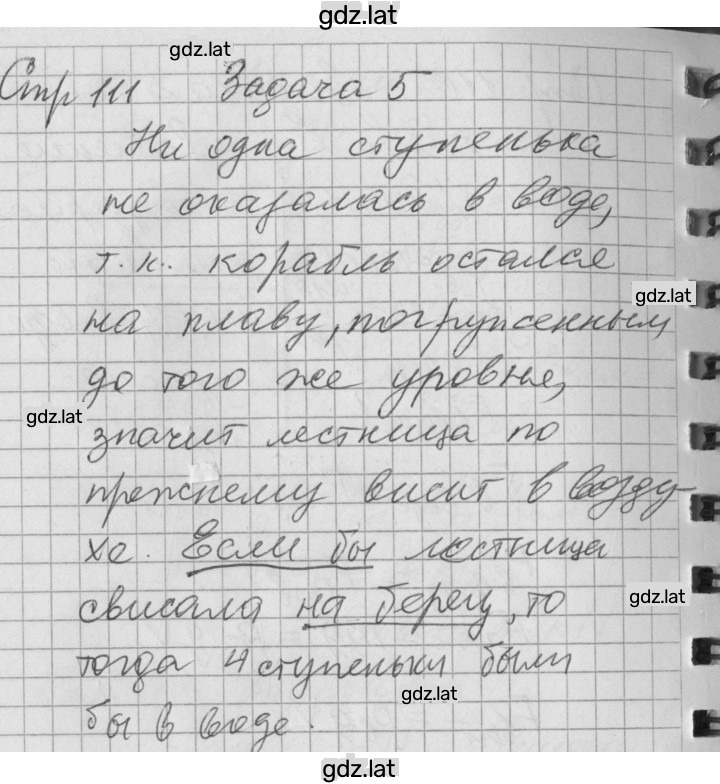 gdz.lat
gdz.lat
Стр 111 Задача 5
Ни одна ступенька
не оказалась в воде,
т.к. корабль остался
gdz.lat
на плаву, погруженным
до того же уровня,
gdz.lat
значит лестница по
прежнему висит в возду-
хе. Если бы лестница
свисала на берегу, то
gdz.lat
тогда 4 ступеньки были
gdz.lat
бы в воде.
gdz.lat